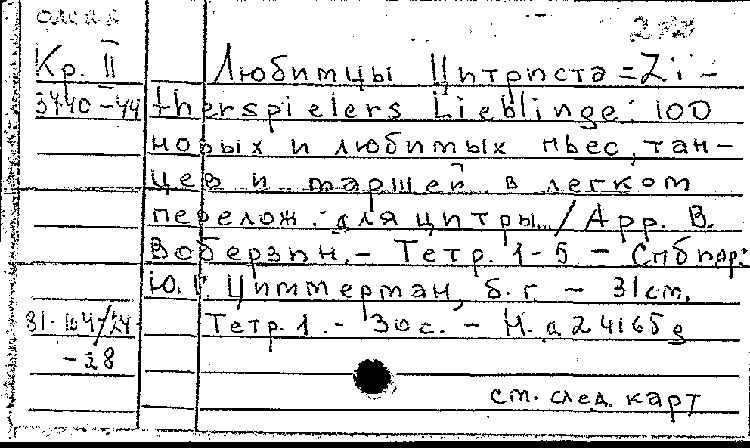 Кр. II
3740-44
Любимцы Цитриста = Zi-
therspielers Lieblinge: 100
новых и любимых пьес, тан-
цев и маршей в легком
перелож. для цитры / Арр. В.
Воберзин. - Тетр. 1-5 - Спб пар:
Ю. Г. Циммерман, б. г. - 31 см.
81-104/24
-28
Тетр. 1. - 30 с. - Н. а 24165 д
см. след. карт